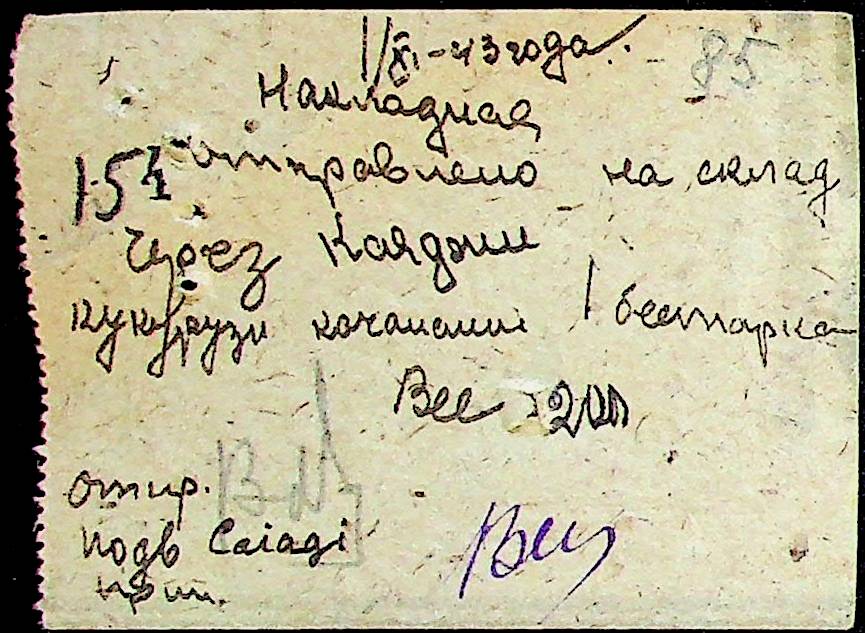 1/XI-43 года.
85
Накладная
154 отправлено на склад
через
кукурузи кочанами 1 бестарка
Вес 200
отпр.
подв Саіаді